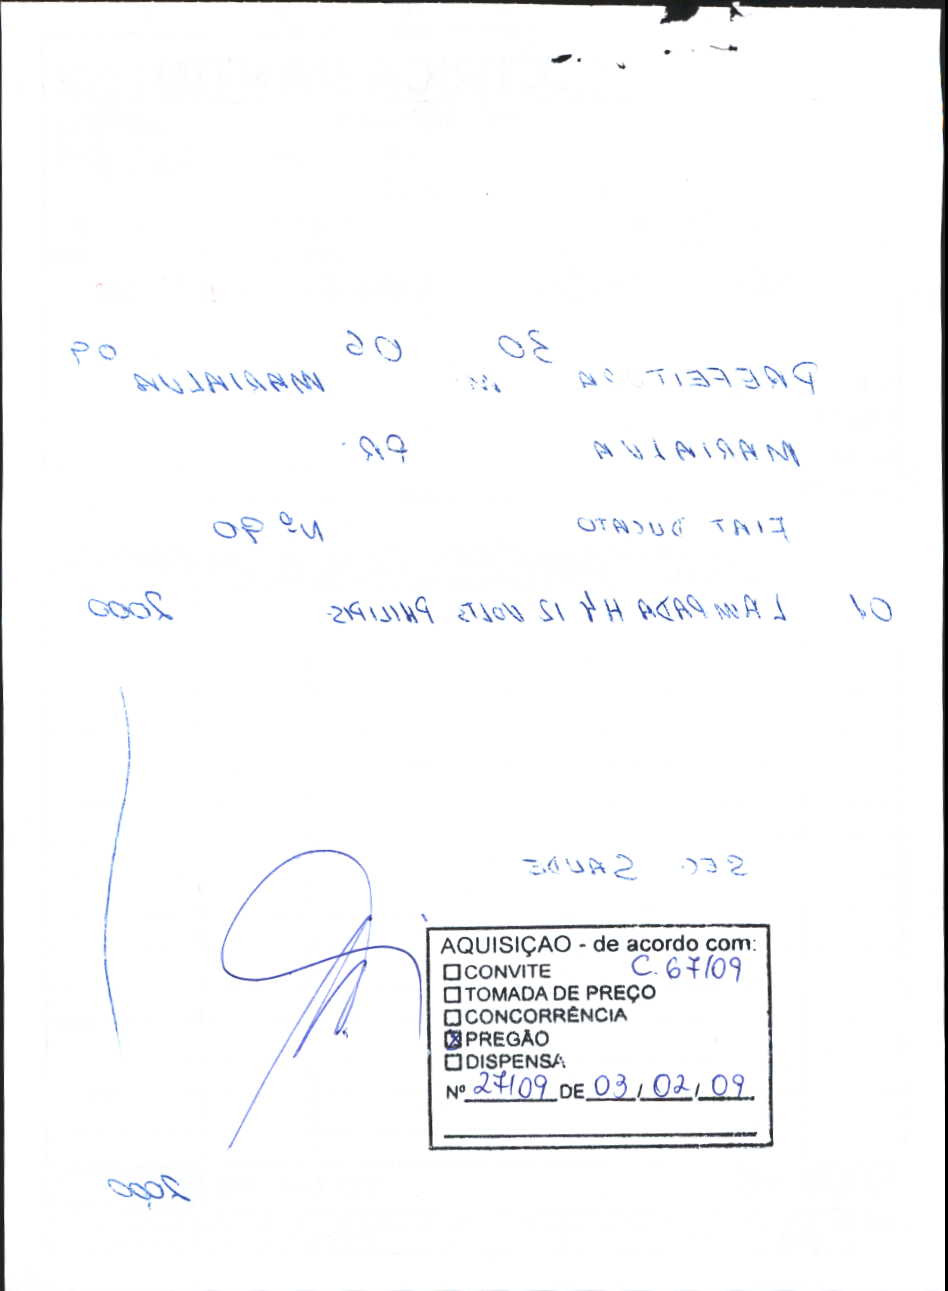 30 06 09
PREFEITURA M MARIALVA
MARIALVA PR.
FIAT DUCATO Nº 90
01 LAMPADA H4 12 VOLTS PHILIPIS 2000
SEC SAUDE
AQUISIÇAO - de acordo com:
☐ CONVITE C. 67/09
☐ TOMADA DE PREÇO
☐ CONCORRÊNCIA
☒ PREGÃO
☐ DISPENSA
Nº 27/09 DE 03/02/09
2000